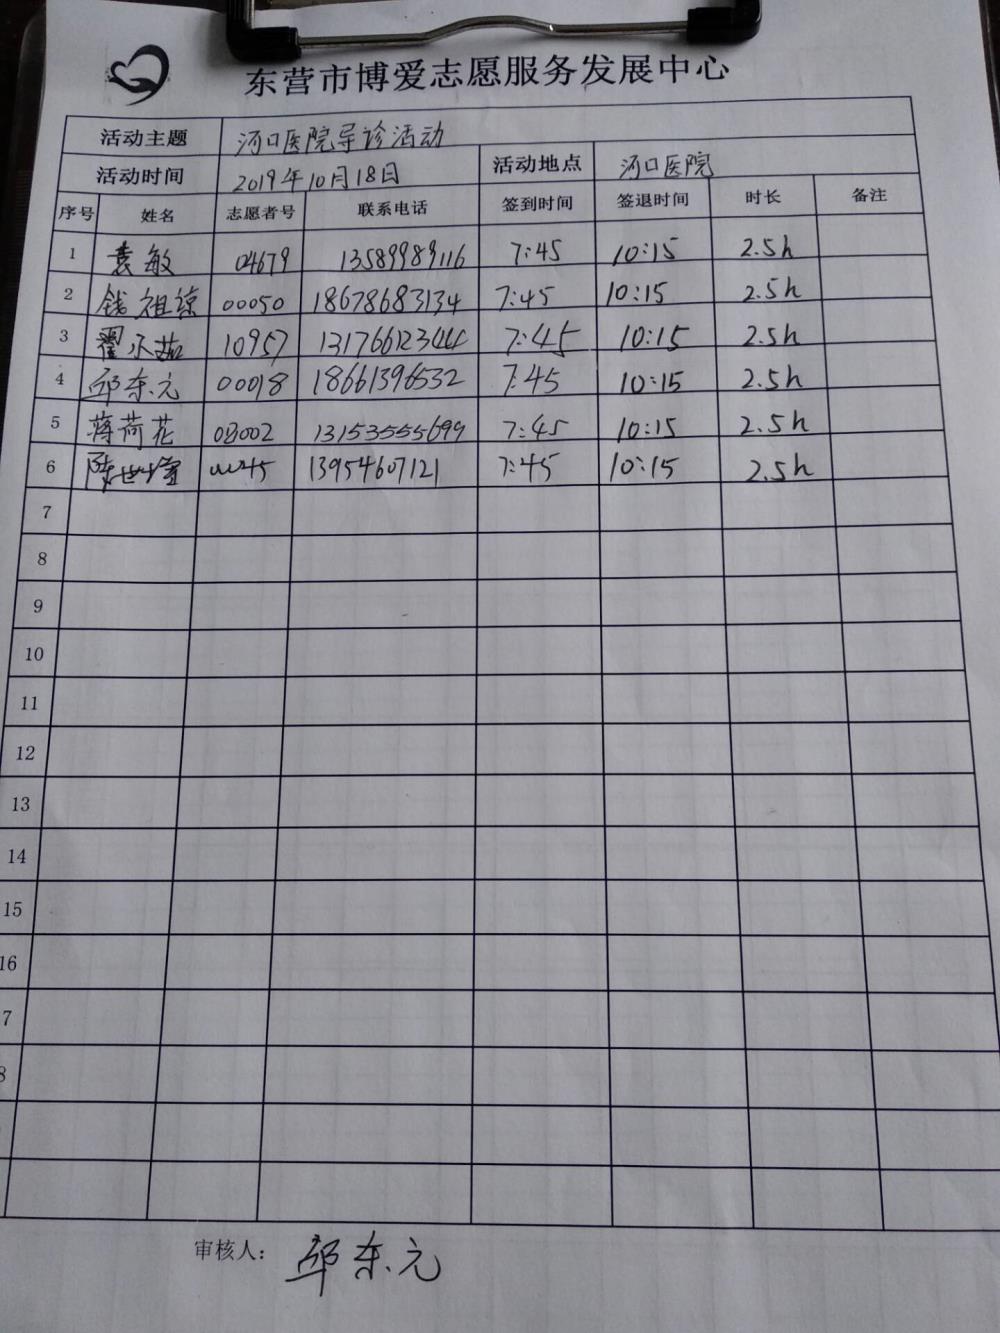 东营市博爱志愿服务发展中心
活动主题 河口医院导诊活动
活动时间 2019年10月18日 活动地点 河口医院
序号 姓名 志愿者号 联系电话 签到时间 签退时间 时长 备注
1 袁敏 04679 13589989116 7:45 10:15 2.5h
2 钱祖琼 00050 18678683134 7:45 10:15 2.5h
3 翟 10957 13176612344 7:45 10:15 2.5h
4 邱东元 00018 18661396532 7:45 10:15 2.5h
5 蒋荷花 03002 13153555699 7:45 10:15 2.5h
6 陈世 00045 13954607121 7:45 10:15 2.5h
7
8
9
10
11
12
13
14
15
16
7
8
审核人: 邱东元